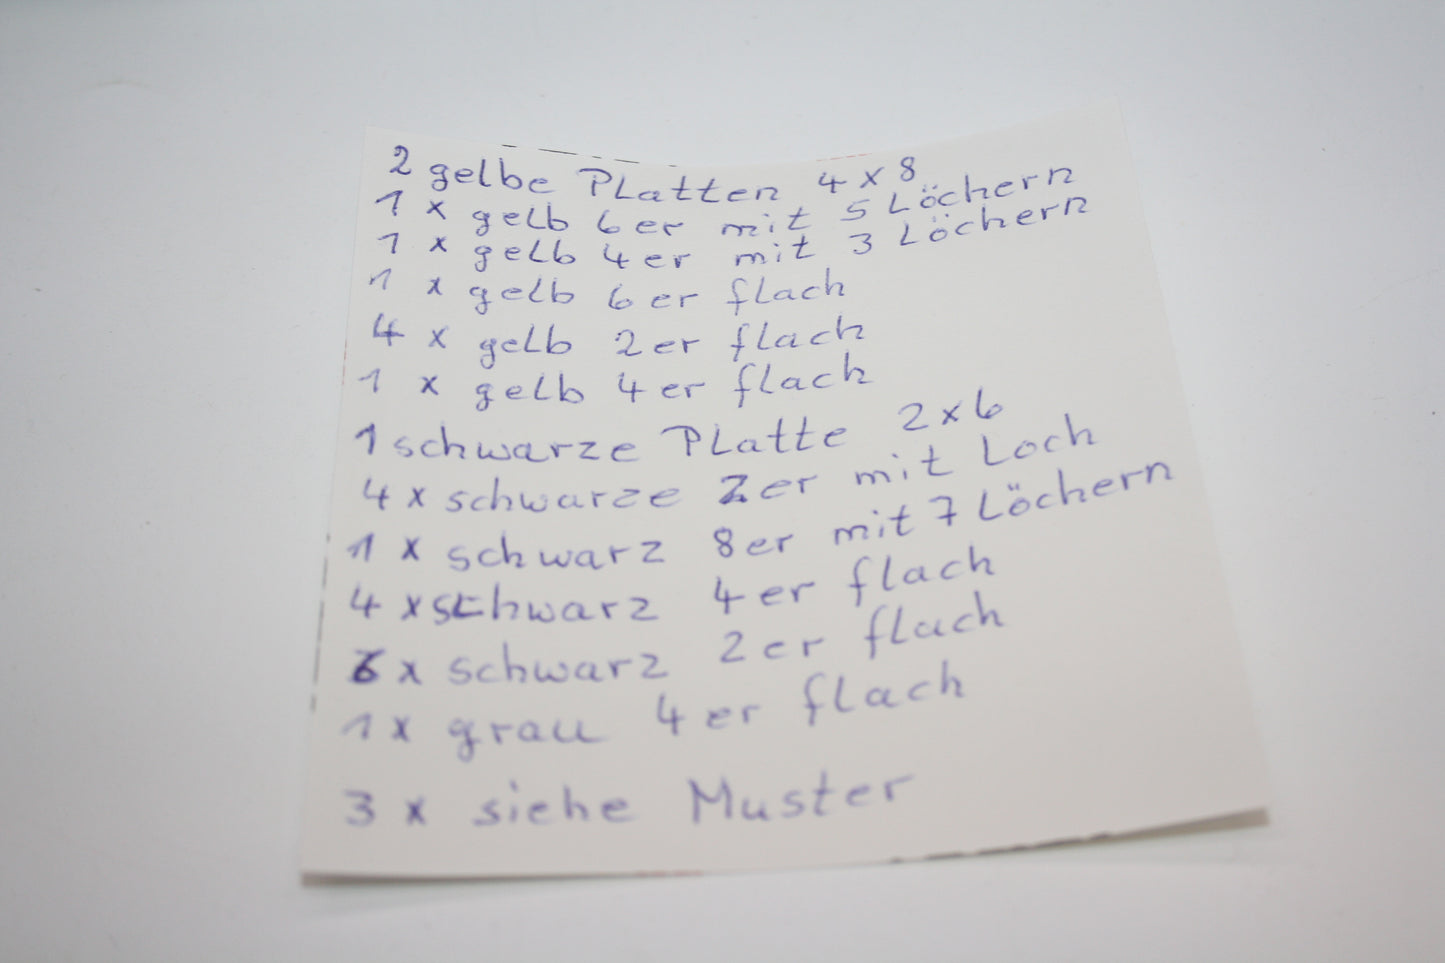 2 gelbe Platten 4x8
1 x gelb 6er mit 5 Löchern
1 x gelb 4er mit 3 Löchern
1 x gelb 6er flach
4 x gelb 2er flach
1 x gelb 4er flach
1 schwarze Platte 2x6
4 x schwarze 2er mit Loch
1 x schwarz 8er mit 7 Löchern
4 x schwarz 4er flach
x schwarz 2er flach
1 x grau 4er flach
3 x siehe Muster